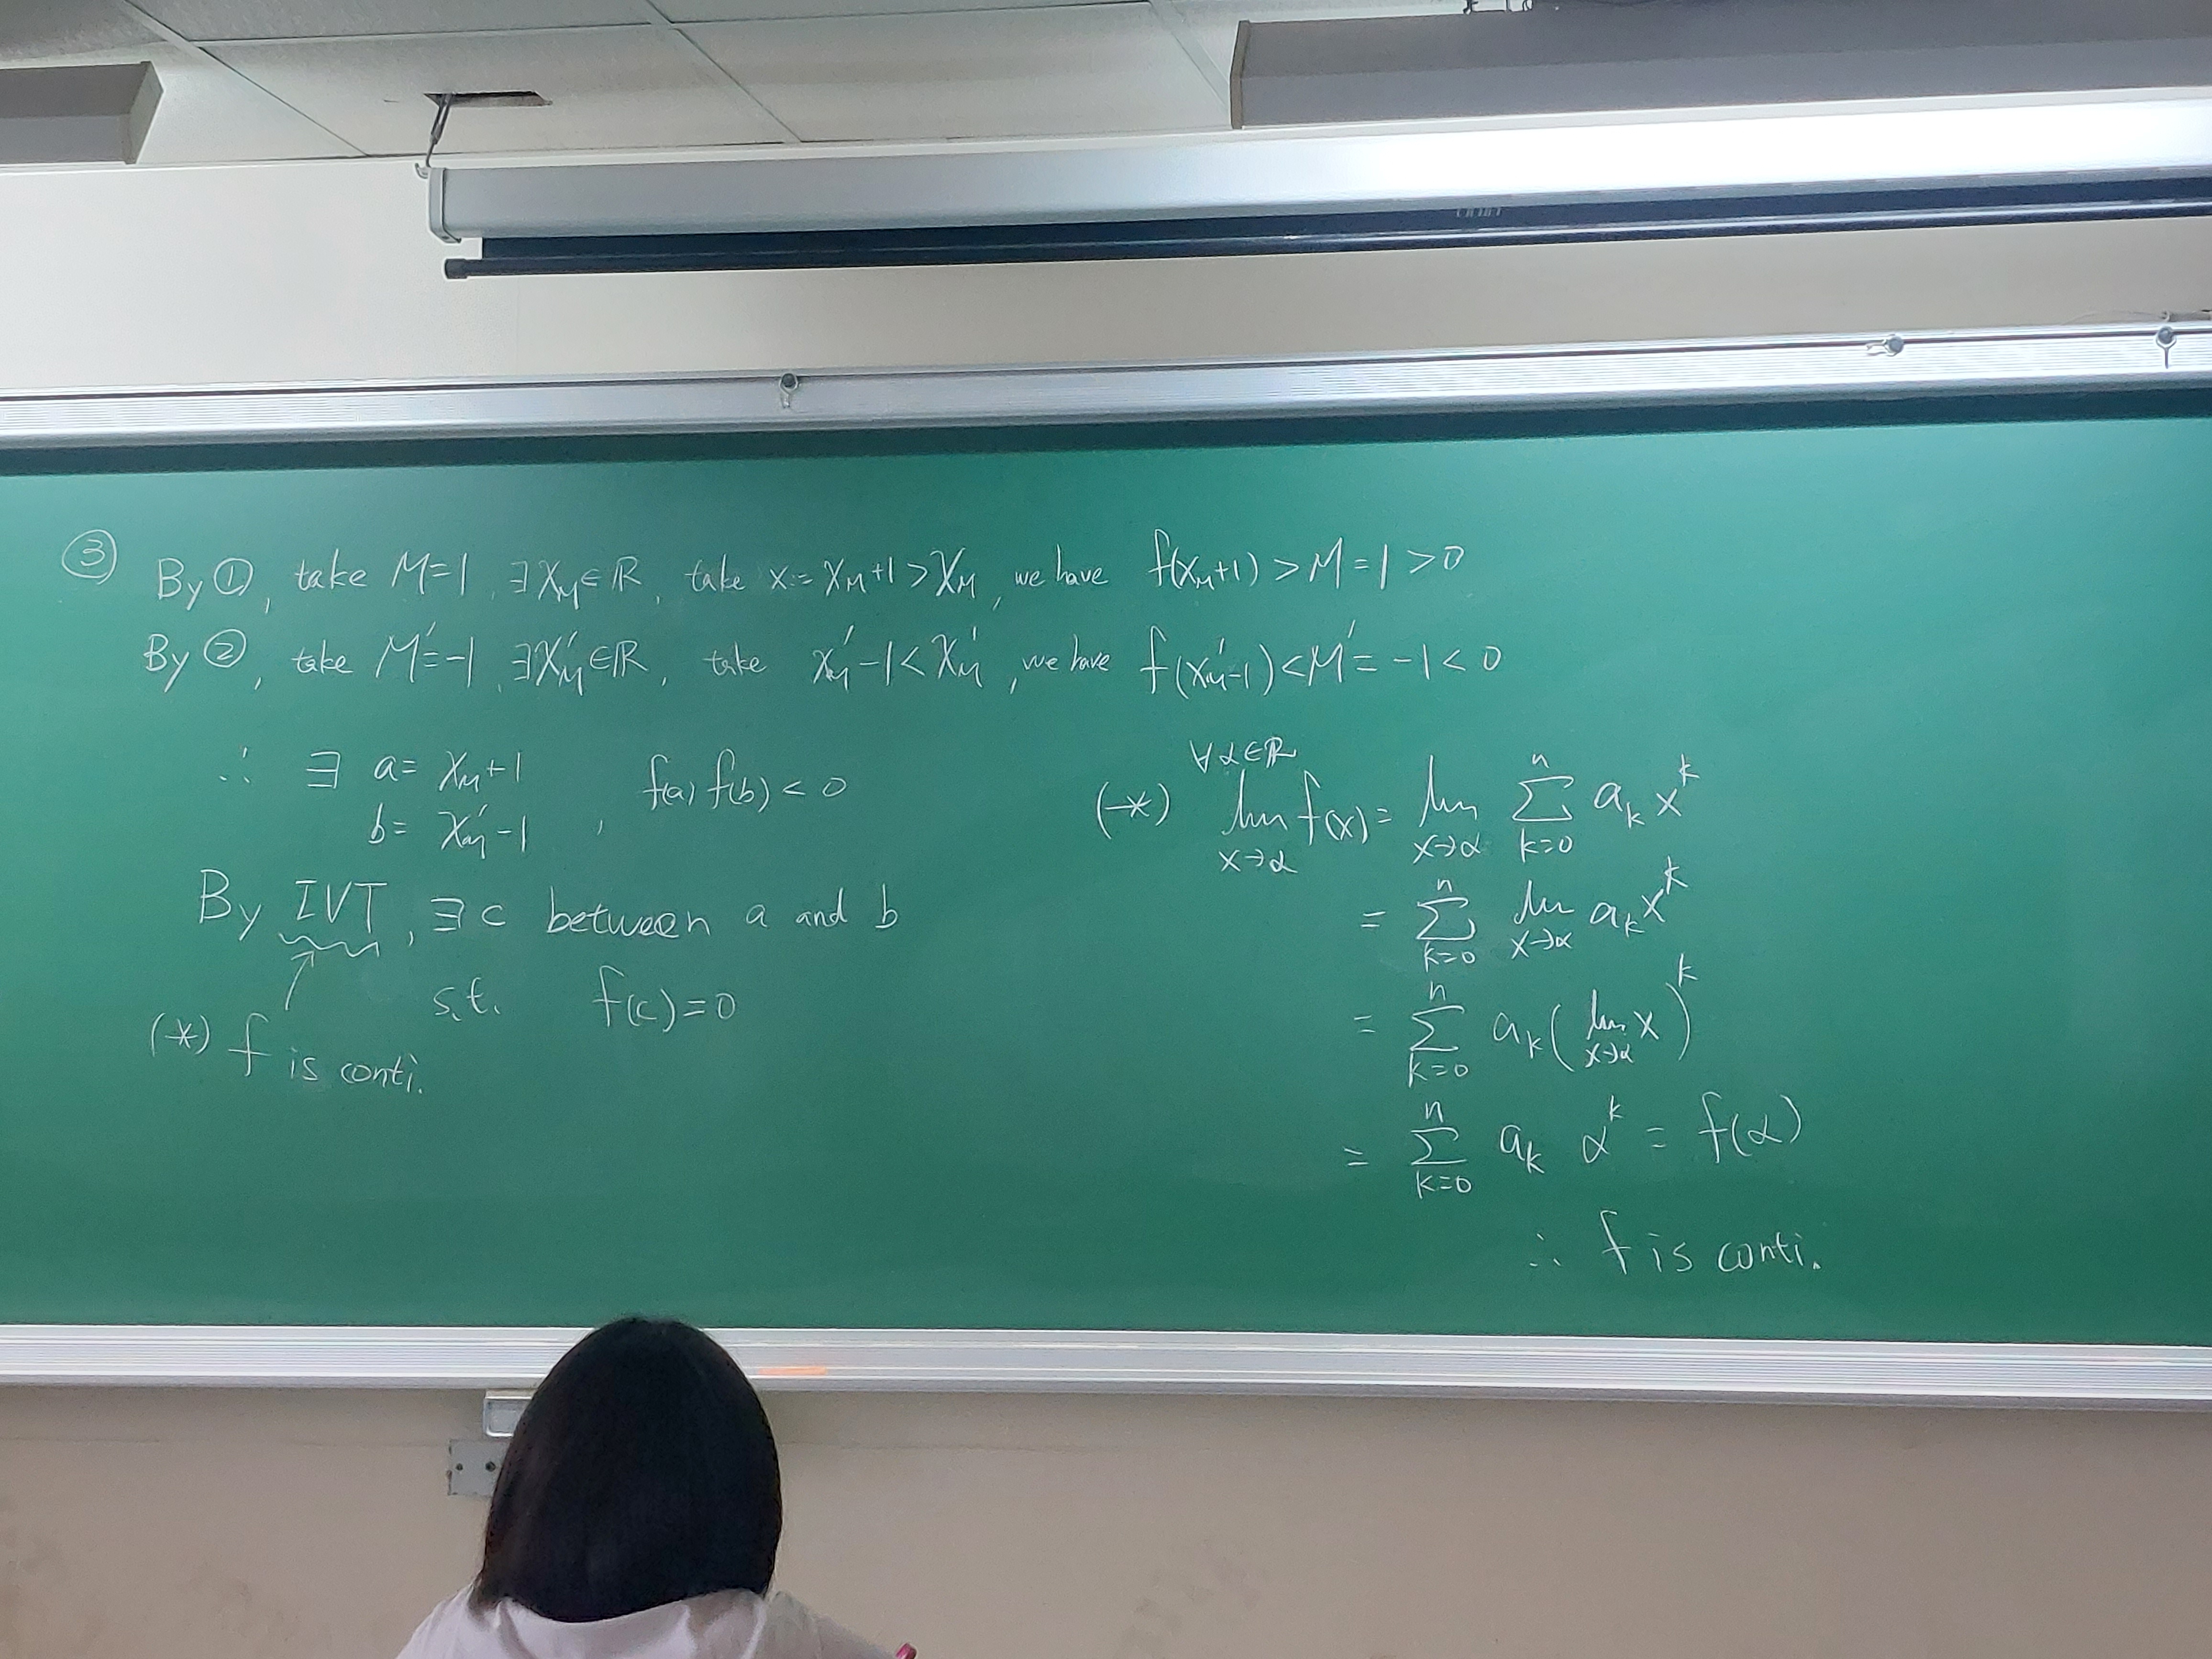 ③ By ①, take M=1, ∃ X_M ∈ ℝ, take x = X_M+1 > X_M, we have f(X_M+1) > M = 1 > 0
By ②, take M'=-1, ∃ X'_M ∈ ℝ, take X'_M-1 < X'_M, we have f(X'_M-1) < M' = -1 < 0
∴ ∃ a = X_M+1
b = X'_M-1 , f(a) f(b) < 0
By IVT, ∃ c between a and b
s.t. f(c)=0
(*) f is conti.
∀α∈ℝ
(*) lim_{x→α} f(x) = lim_{x→α} ∑_{k=0}^{n} a_k x^k
= ∑_{k=0}^{n} lim_{x→α} a_k x^k
= ∑_{k=0}^{n} a_k ( lim_{x→α} x )^k
= ∑_{k=0}^{n} a_k α^k = f(α)
∴ f is conti.